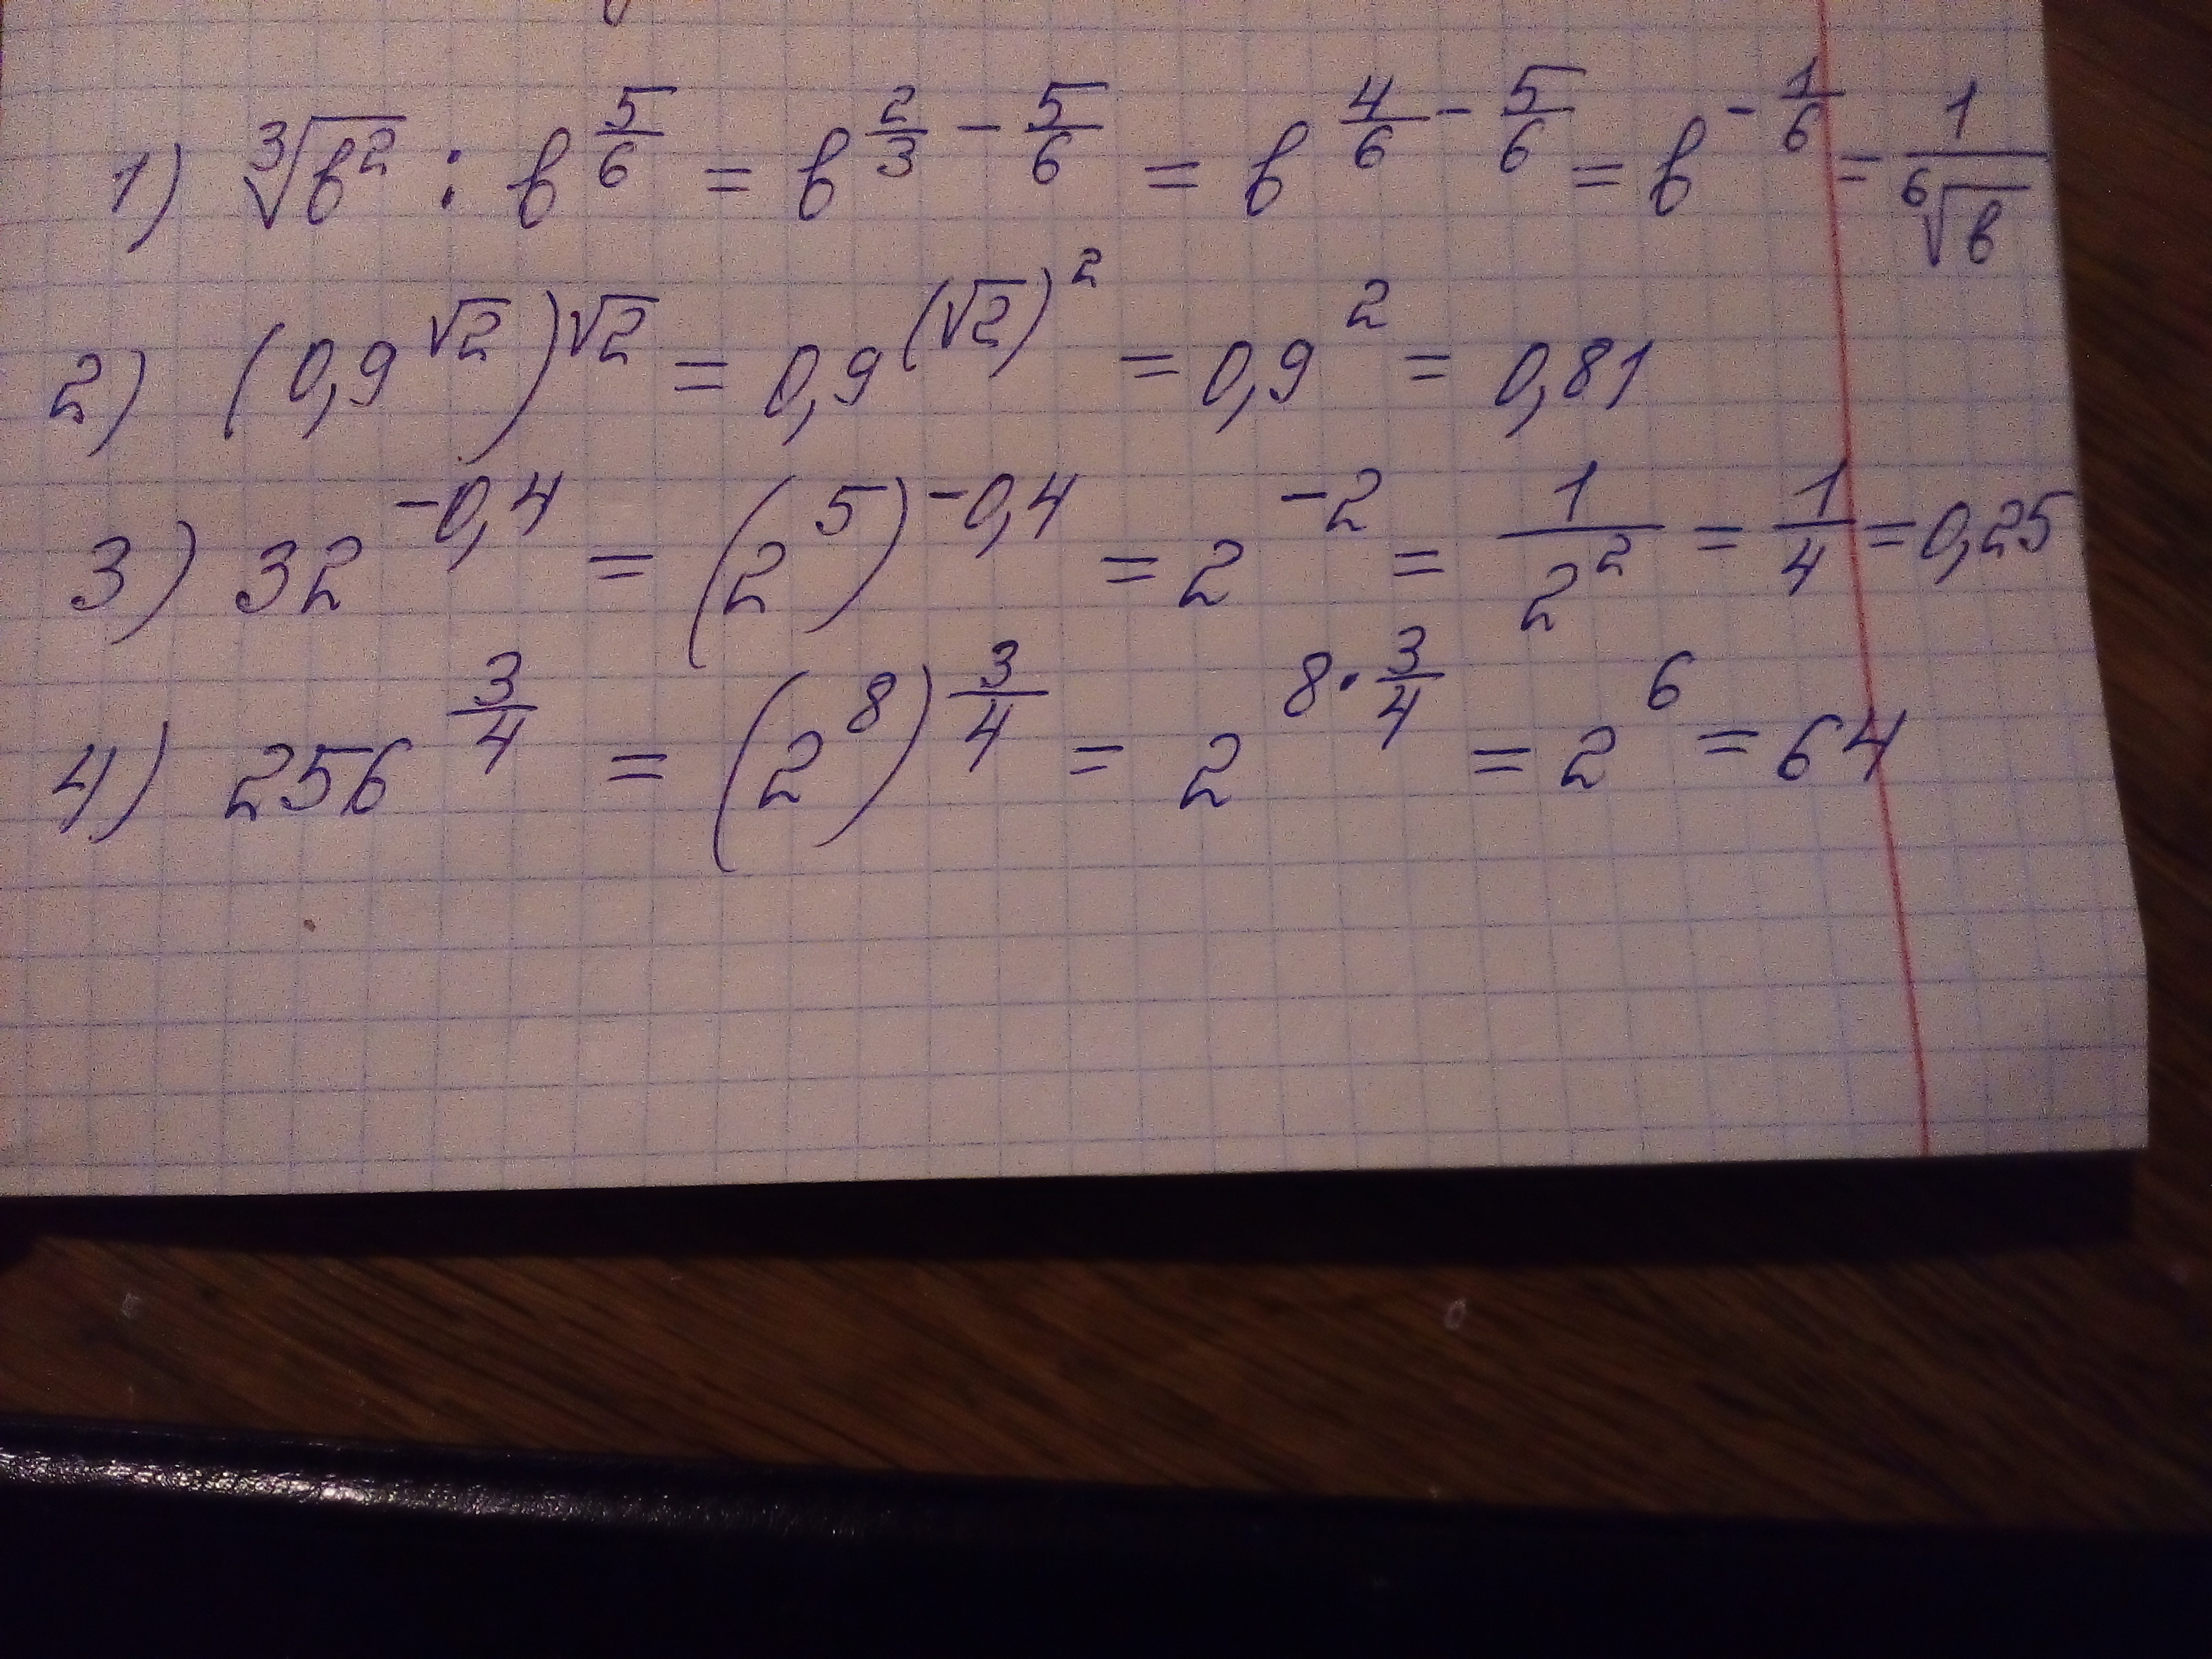 1) ∛(b²) : b^(5/6) = b^(2/3 − 5/6) = b^(4/6 − 5/6) = b^(−1/6) = 1/⁶√b
2) (0,9^√2)^√2 = 0,9^(√2)² = 0,9² = 0,81
3) 32^(−0,4) = (2⁵)^(−0,4) = 2^(−2) = 1/2² = 1/4 = 0,25
4) 256^(3/4) = (2⁸)^(3/4) = 2^(8·3/4) = 2⁶ = 64